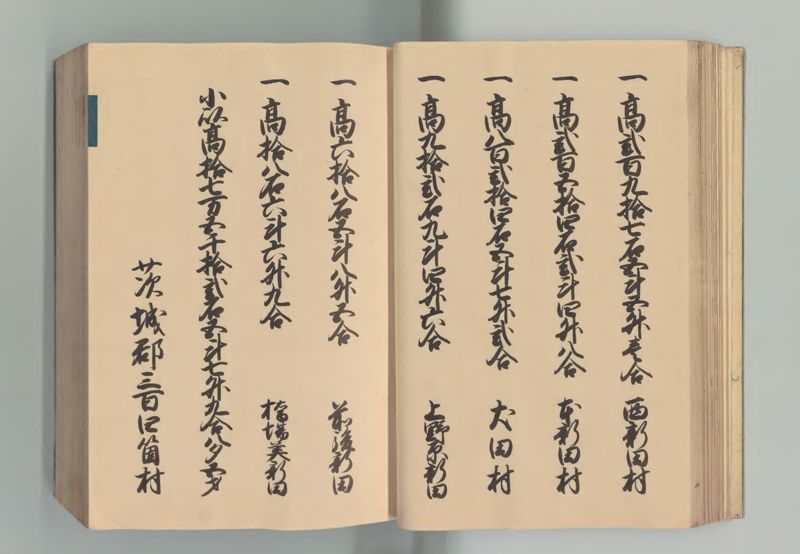 一 高弐百九拾七石五斗五升壱合 西新田村
一 高弐百五拾四石弐斗四升八合 本新田村
一 高八百弐拾四石五斗七升弐合 大田村
一 高九拾弐石九斗四升六合 上野原新田
一 高六拾八石五斗八升五合 前後新田
一 高拾八石六斗六升九合 橋場美新田
小以高拾七万五千拾弐石五斗七升九合八夕五才
茨城郡三百四箇村